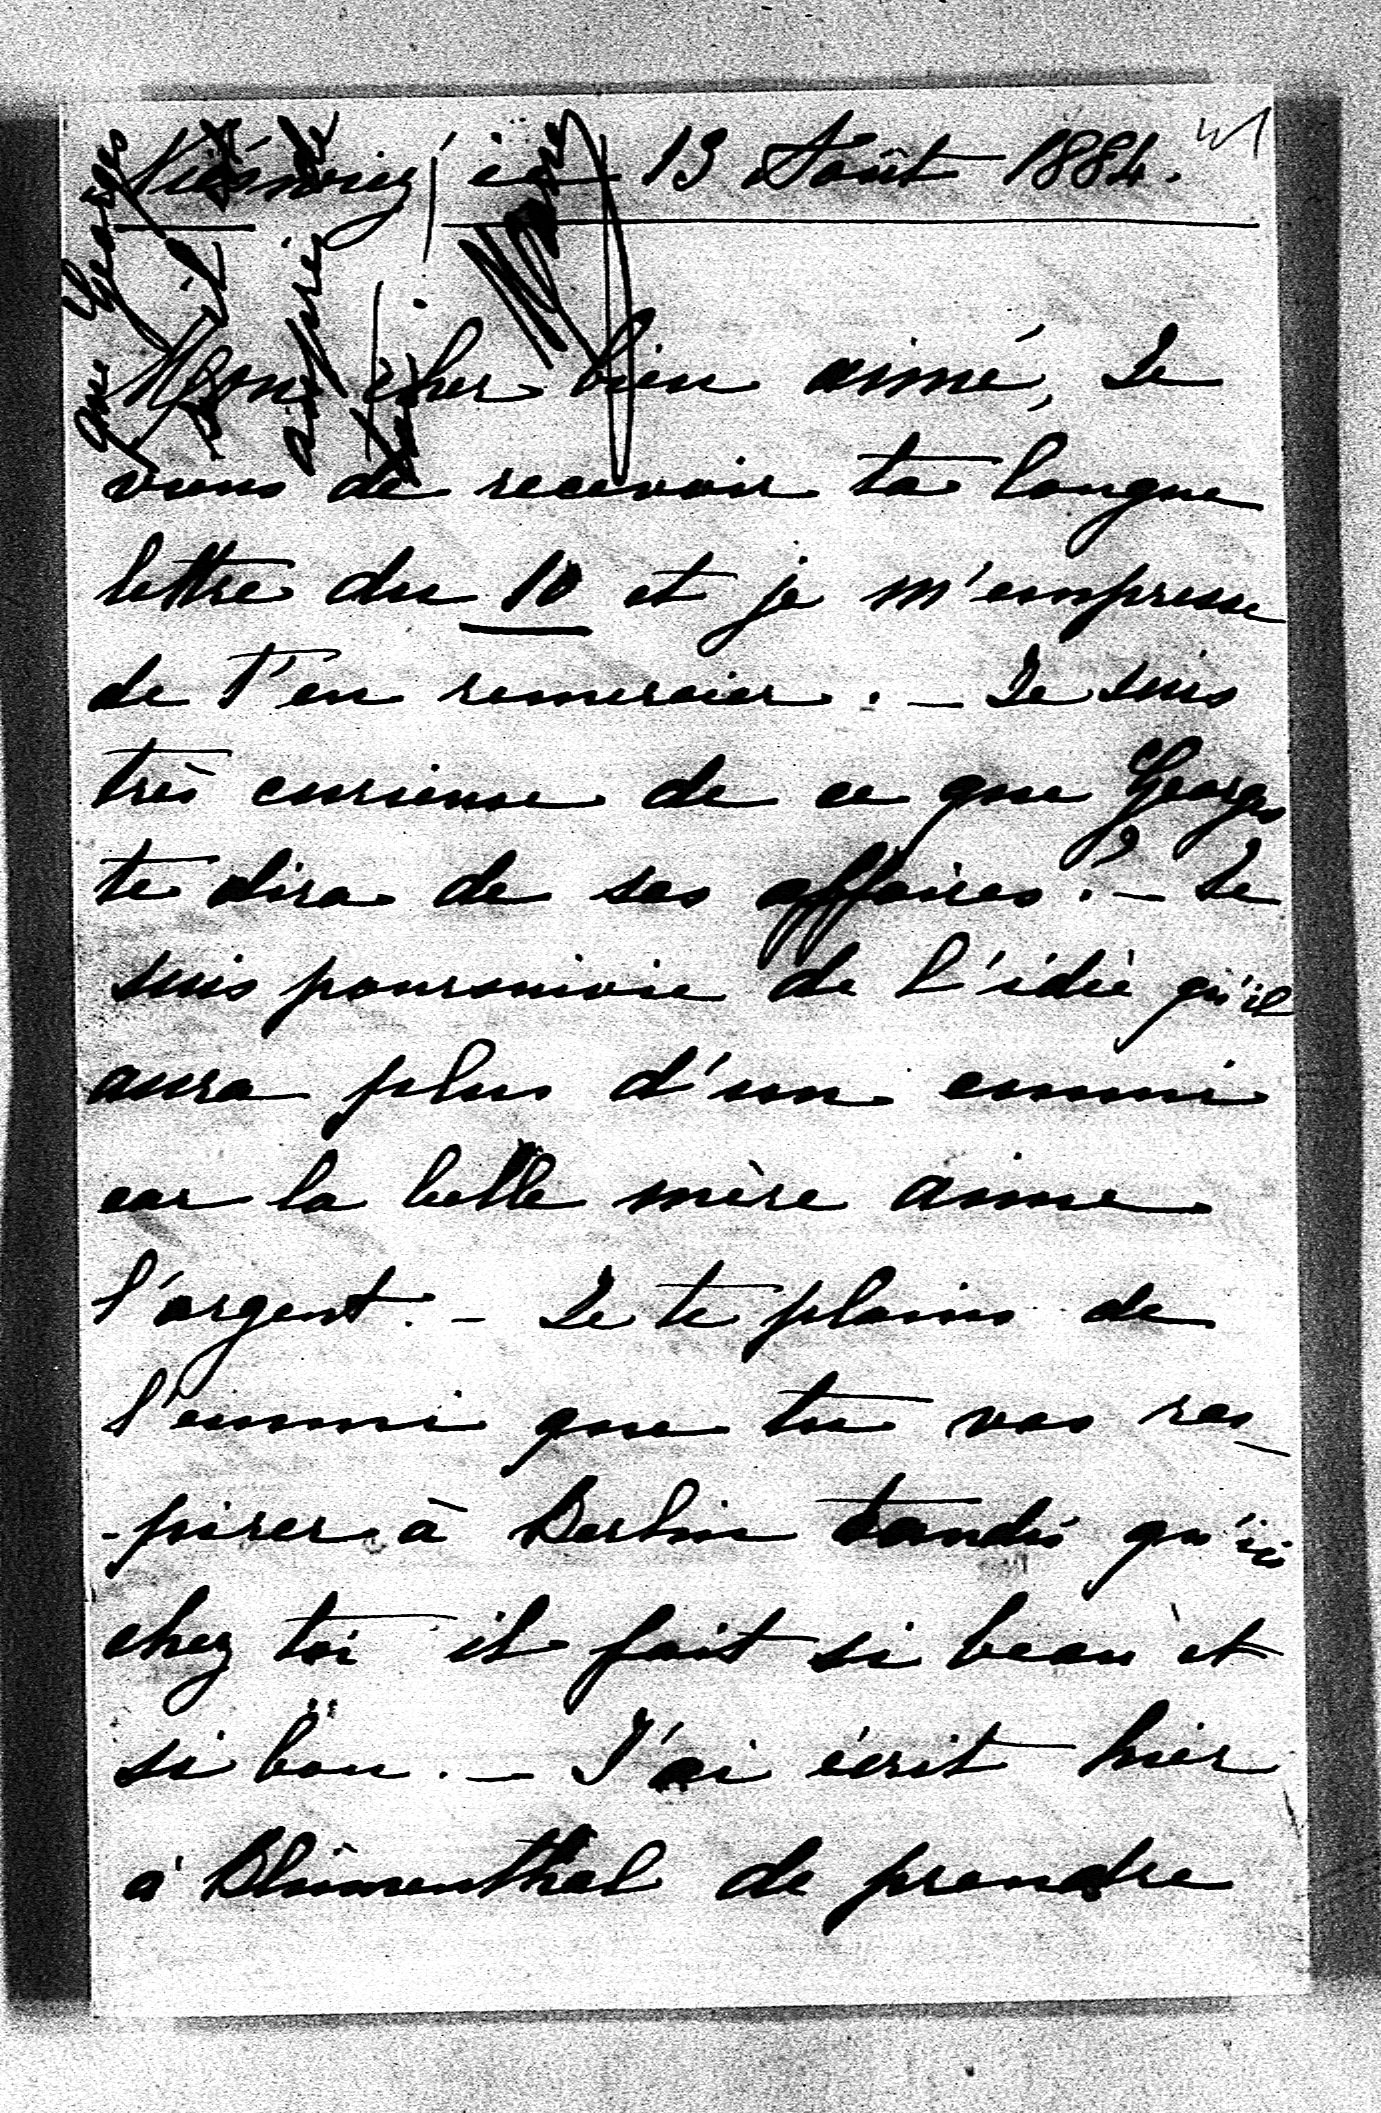 Nieśwież, ce 13 Août 1884.
Mon cher bien aimé, Je
viens de recevoir ta longue
lettre du 10 et je m'empresse
de t'en remercier. – Je suis
très curieuse de ce que Georges
te dira de ses affaires? – Je
suis poursuivie de l'idée qu'il
aura plus d'un ennui
car la belle mère aime
l'argent. – Je te plains de
l'ennui que tu vas res-
-pirer à Berlin tandis qu'ici
chez toi il fait si beau et
si bon. – J'ai écrit hier
à Blumenthal de prendre
que Georges
Marie